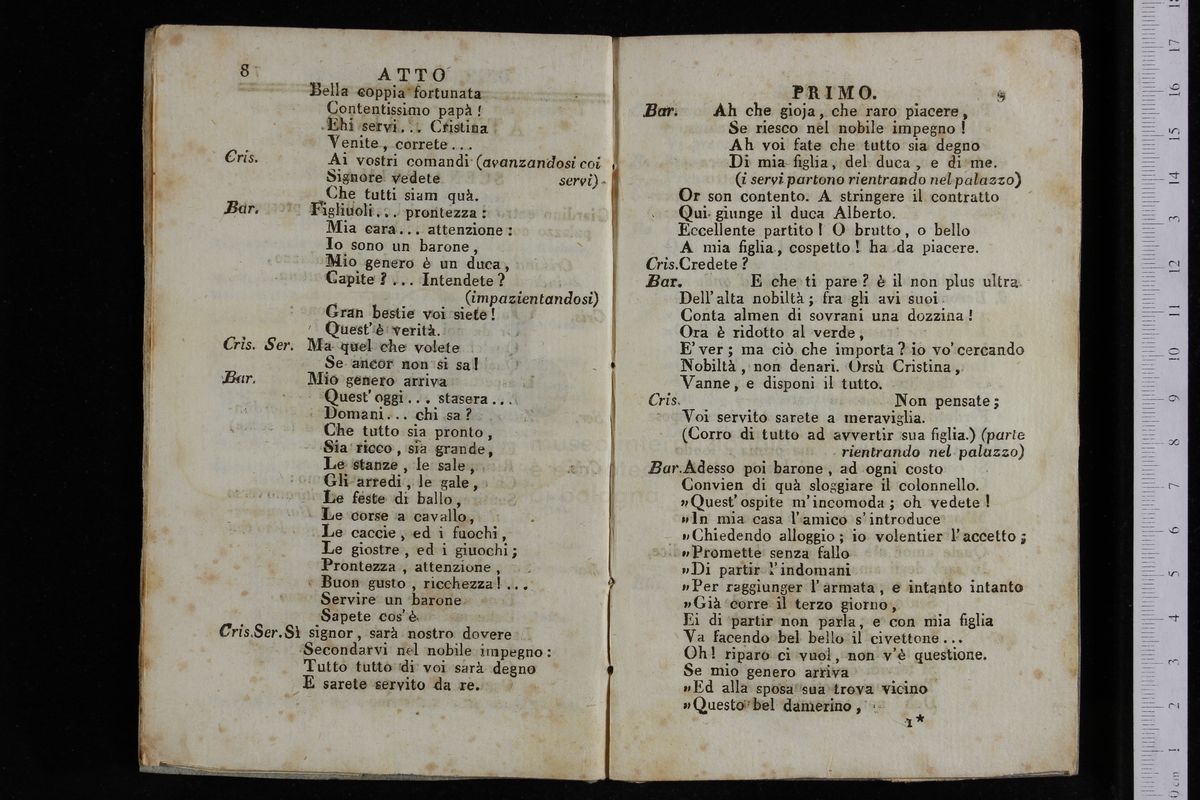 8
ATTO
Bella coppia fortunata
Contentissimo papà !
Ehi servi... Cristina
Venite, correte...
Cris. Ai vostri comandi (avanzandosi coi
Signore vedete servi)
Che tutti siam quà.
Bar. Figliuoli... prontezza :
Mia cara... attenzione :
Io sono un barone,
Mio genero è un duca,
Capite ? ... Intendete ?
(impazientandosi)
Gran bestie voi siete !
Quest' è verità.
Cris. Ser. Ma quel che volete
Se ancor non si sa !
Bar. Mio genero arriva
Quest' oggi... stasera...
Domani... chi sa ?
Che tutto sia pronto,
Sia ricco, sia grande,
Le stanze, le sale,
Gli arredi, le gale,
Le feste di ballo,
Le corse a cavallo,
Le caccie, ed i fuochi,
Le giostre, ed i giuochi;
Prontezza, attenzione,
Buon gusto, ricchezza ! ...
Servire un barone
Sapete cos' è
Cris.Ser. Sì signor, sarà nostro dovere
Secondarvi nel nobile impegno :
Tutto tutto di voi sarà degno
E sarete servito da re.
PRIMO.
9
Bar. Ah che gioja, che raro piacere,
Se riesco nel nobile impegno !
Ah voi fate che tutto sia degno
Di mia figlia, del duca, e di me.
(i servi partono rientrando nel palazzo)
Or son contento. A stringere il contratto
Qui giunge il duca Alberto.
Eccellente partito ! O brutto, o bello
A mia figlia, cospetto ! ha da piacere.
Cris. Credete ?
Bar. E che ti pare ? è il non plus ultra
Dell' alta nobiltà ; fra gli avi suoi
Conta almen di sovrani una dozzina !
Ora è ridotto al verde,
E' ver ; ma ciò che importa ? io vo' cercando
Nobiltà, non denari. Orsù Cristina,
Vanne, e disponi il tutto.
Cris. Non pensate ;
Voi servito sarete a meraviglia.
(Corro di tutto ad avvertir sua figlia.) (parte
rientrando nel palazzo)
Bar. Adesso poi barone, ad ogni costo
Convien di quà sloggiare il colonnello.
„Quest' ospite m'incomoda ; oh vedete !
„In mia casa l'amico s'introduce
„Chiedendo alloggio ; io volentier l'accetto ;
„Promette senza fallo
„Di partir l'indomani
„Per raggiunger l'armata, e intanto intanto
„Già corre il terzo giorno,
Ei di partir non parla, e con mia figlia
Va facendo bel bello il civettone...
Oh ! riparo ci vuol, non v'è questione.
Se mio genero arriva
„Ed alla sposa sua trova vicino
„Questo bel damerino,
1*